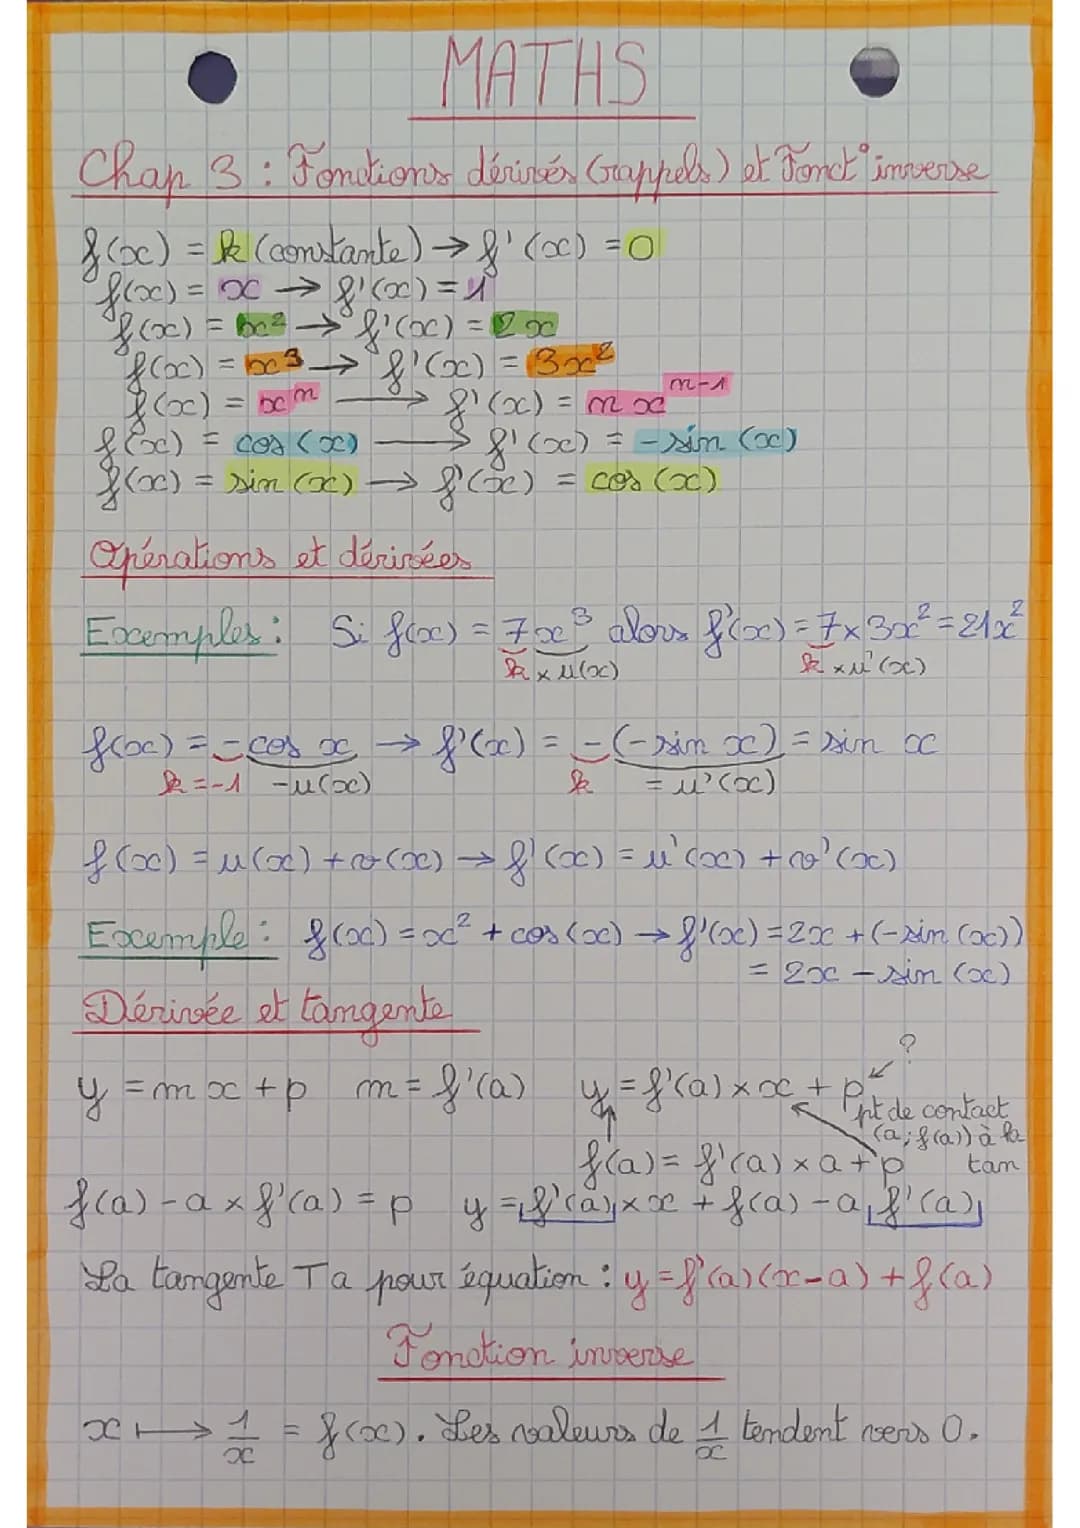 MATHS
Chap 3 : Fonctions dérivés (rappels) et Fonct° inverse
f(x) = k (constante) → f'(x) = 0
f(x) = x → f'(x) = 1
f(x) = x² → f'(x) = 2x
f(x) = x³ → f'(x) = 3x²
f(x) = xⁿ → f'(x) = n xⁿ⁻¹
f(x) = cos (x) → f'(x) = -sin (x)
f(x) = sin (x) → f'(x) = cos (x)
Opérations et dérivées
Exemples : Si f(x) = 7x³ alors f'(x) = 7×3x² = 21x²
k × u(x) k × u'(x)
f(x) = - cos x → f'(x) = - (-sin x) = sin x
k = -1 -u(x) k = u'(x)
f(x) = u(x) + v(x) → f'(x) = u'(x) + v'(x)
Exemple : f(x) = x² + cos(x) → f'(x) = 2x + (-sin(x))
= 2x - sin (x)
Dérivée et tangente
?
y = mx + p m = f'(a) y = f'(a) × x + p
pt de contact
(a ; f(a)) à la
f(a) = f'(a) × a + p tan
f(a) - a × f'(a) = p y = f'(a) × x + f(a) - a f'(a)
La tangente Ta pour équation : y = f'(a)(x-a) + f(a)
Fonction inverse
x ↦ 1/x = f(x). Les valeurs de 1/x tendent vers 0.